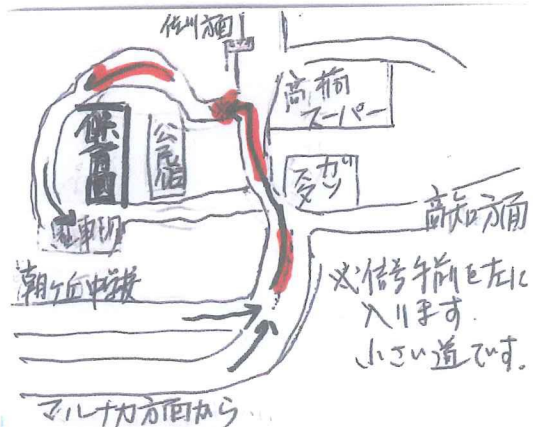 佐川方面
高橋
スーパー
保育園
公民館
ガソ
スタ
高知方面
駐車場
朝ヶ丘中学校
※信号手前を左に
入ります.
小さい道です.
マルナカ方面から